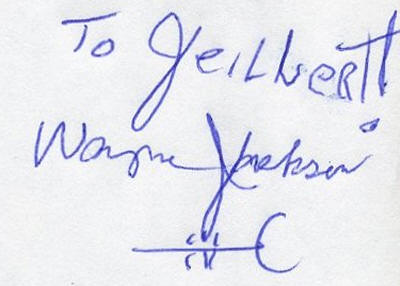 To Geilbert!
Wayne Jackson